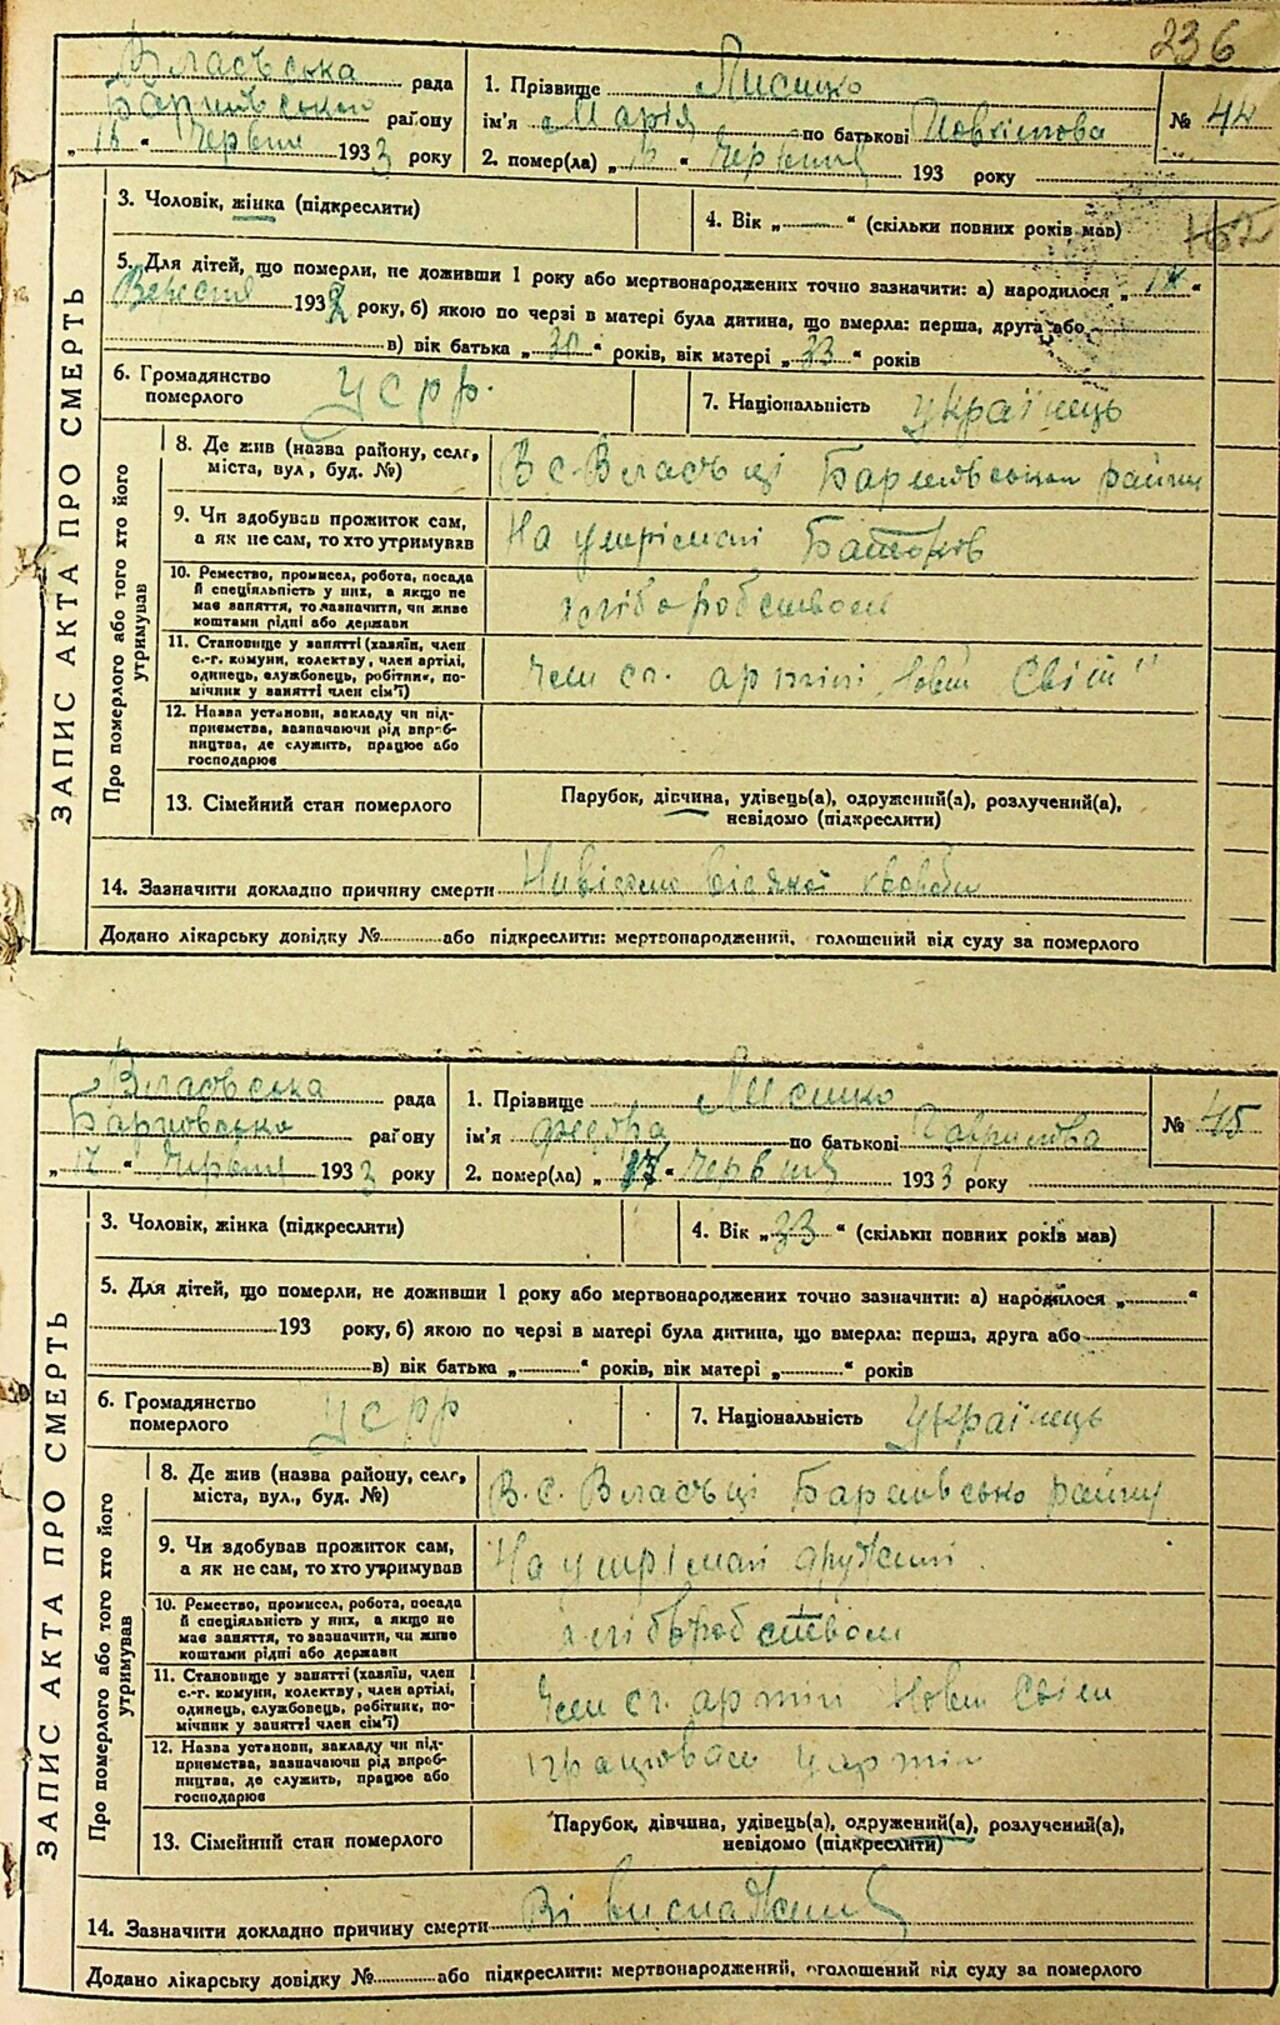 236
Власівська рада
1. Прізвище Лисицко
Баришівського району
ім'я Марія по батькові Йовхимова
№ 44
„16“ Червня 1933 року
2. помер(ла) „16“ Червня 193 року
ЗАПИС АКТА ПРО СМЕРТЬ
3. Чоловік, жінка (підкреслити)
4. Вік „ “ (скільки повних років мав)
5. Для дітей, що померли, не доживши 1 року або мертвонароджених точно зазначити: а) народилося „ “
Вересня 1932 року, б) якою по черзі в матері була дитина, що вмерла: перша, друга або
в) вік батька „30“ років, вік матері „33“ років
6. Громадянство померлого УСРР.
7. Національність Українець
Про померлого або того хто його утримував
8. Де жив (назва району, села,
міста, вул, буд. №)
В с. Власівці Баришівського району
9. Чи здобував прожиток сам,
а як не сам, то хто утримував
На утрімані Батьків
10. Ремество, промисел, робота, посада
й спеціяльність у них, а якщо не
має заняття, то зазначити, чи живе
коштами рідні або держави
хліборобством
11. Становище у занятті (хазяїн, член
с.-г. комуни, колектву, член артілі,
одинець, службовець, робітник, по-
мічник у занятті член сім'ї)
член сг. артілі „Новий Світ"
12. Назва установи, закладу чи під-
приємства, зазначаючи рід вироб-
ництва, де служить, працює або
господарює
13. Сімейний стан померлого
Парубок, дівчина, удівець(а), одружений(а), розлучений(а),
невідомо (підкреслити)
14. Зазначити докладно причину смерти Невідомо від якої хвороби
Додано лікарську довідку № або підкреслити: мертвонароджений, оголошений від суду за померлого
Власівська рада
1. Прізвище Лисицко
Баришівсько району
ім'я Федора по батькові Гаврилова
№ 45
„17“ Червня 1933 року
2. помер(ла) „17“ Червня 1933 року
ЗАПИС АКТА ПРО СМЕРТЬ
3. Чоловік, жінка (підкреслити)
4. Вік „33“ (скільки повних років мав)
5. Для дітей, що померли, не доживши 1 року або мертвонароджених точно зазначити: а) народилося „ “
193 року, б) якою по черзі в матері була дитина, що вмерла: перша, друга або
в) вік батька „ “ років, вік матері „ “ років
6. Громадянство померлого УСРР
7. Національність Українець
Про померлого або того хто його утримував
8. Де жив (назва району, села,
міста, вул., буд. №)
В. с. Власівці Баришівсько району
9. Чи здобував прожиток сам,
а як не сам, то хто утримував
На утрімані дружині
10. Ремество, промисел, робота, посада
й спеціяльність у них, а якщо не
має заняття, то зазначити, чи живе
коштами рідні або держави
хліборобством
11. Становище у занятті (хазяїн, член
с.-г. комуни, колектву, член артілі,
одинець, службовець, робітник, по-
мічник у занятті член сім'ї)
Член сг. артіл Новий Світ
12. Назва установи, закладу чи під-
приємства, зазначаючи рід вироб-
ництва, де служить, працює або
господарює
працював у артіл
13. Сімейний стан померлого
Парубок, дівчина, удівець(а), одружений(а), розлучений(а),
невідомо (підкреслити)
14. Зазначити докладно причину смерти Ві виснаження
Додано лікарську довідку № або підкреслити: мертвонароджений, оголошений від суду за померлого